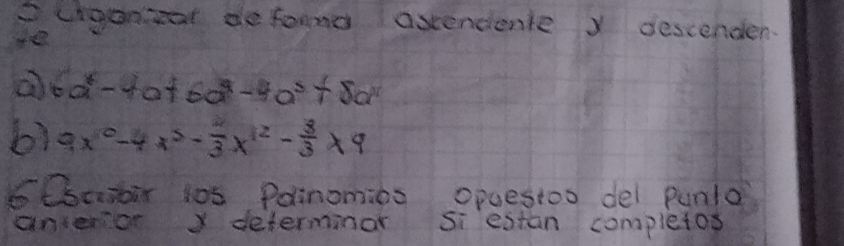 5 Organizar de forma ascendente y descenden-
te
a) 6a⁴-4a+6a
b) 9x⁰-4x⁵-
6 Escribir los Polinomios opuestos del punto
anterior y determinar si estan completos